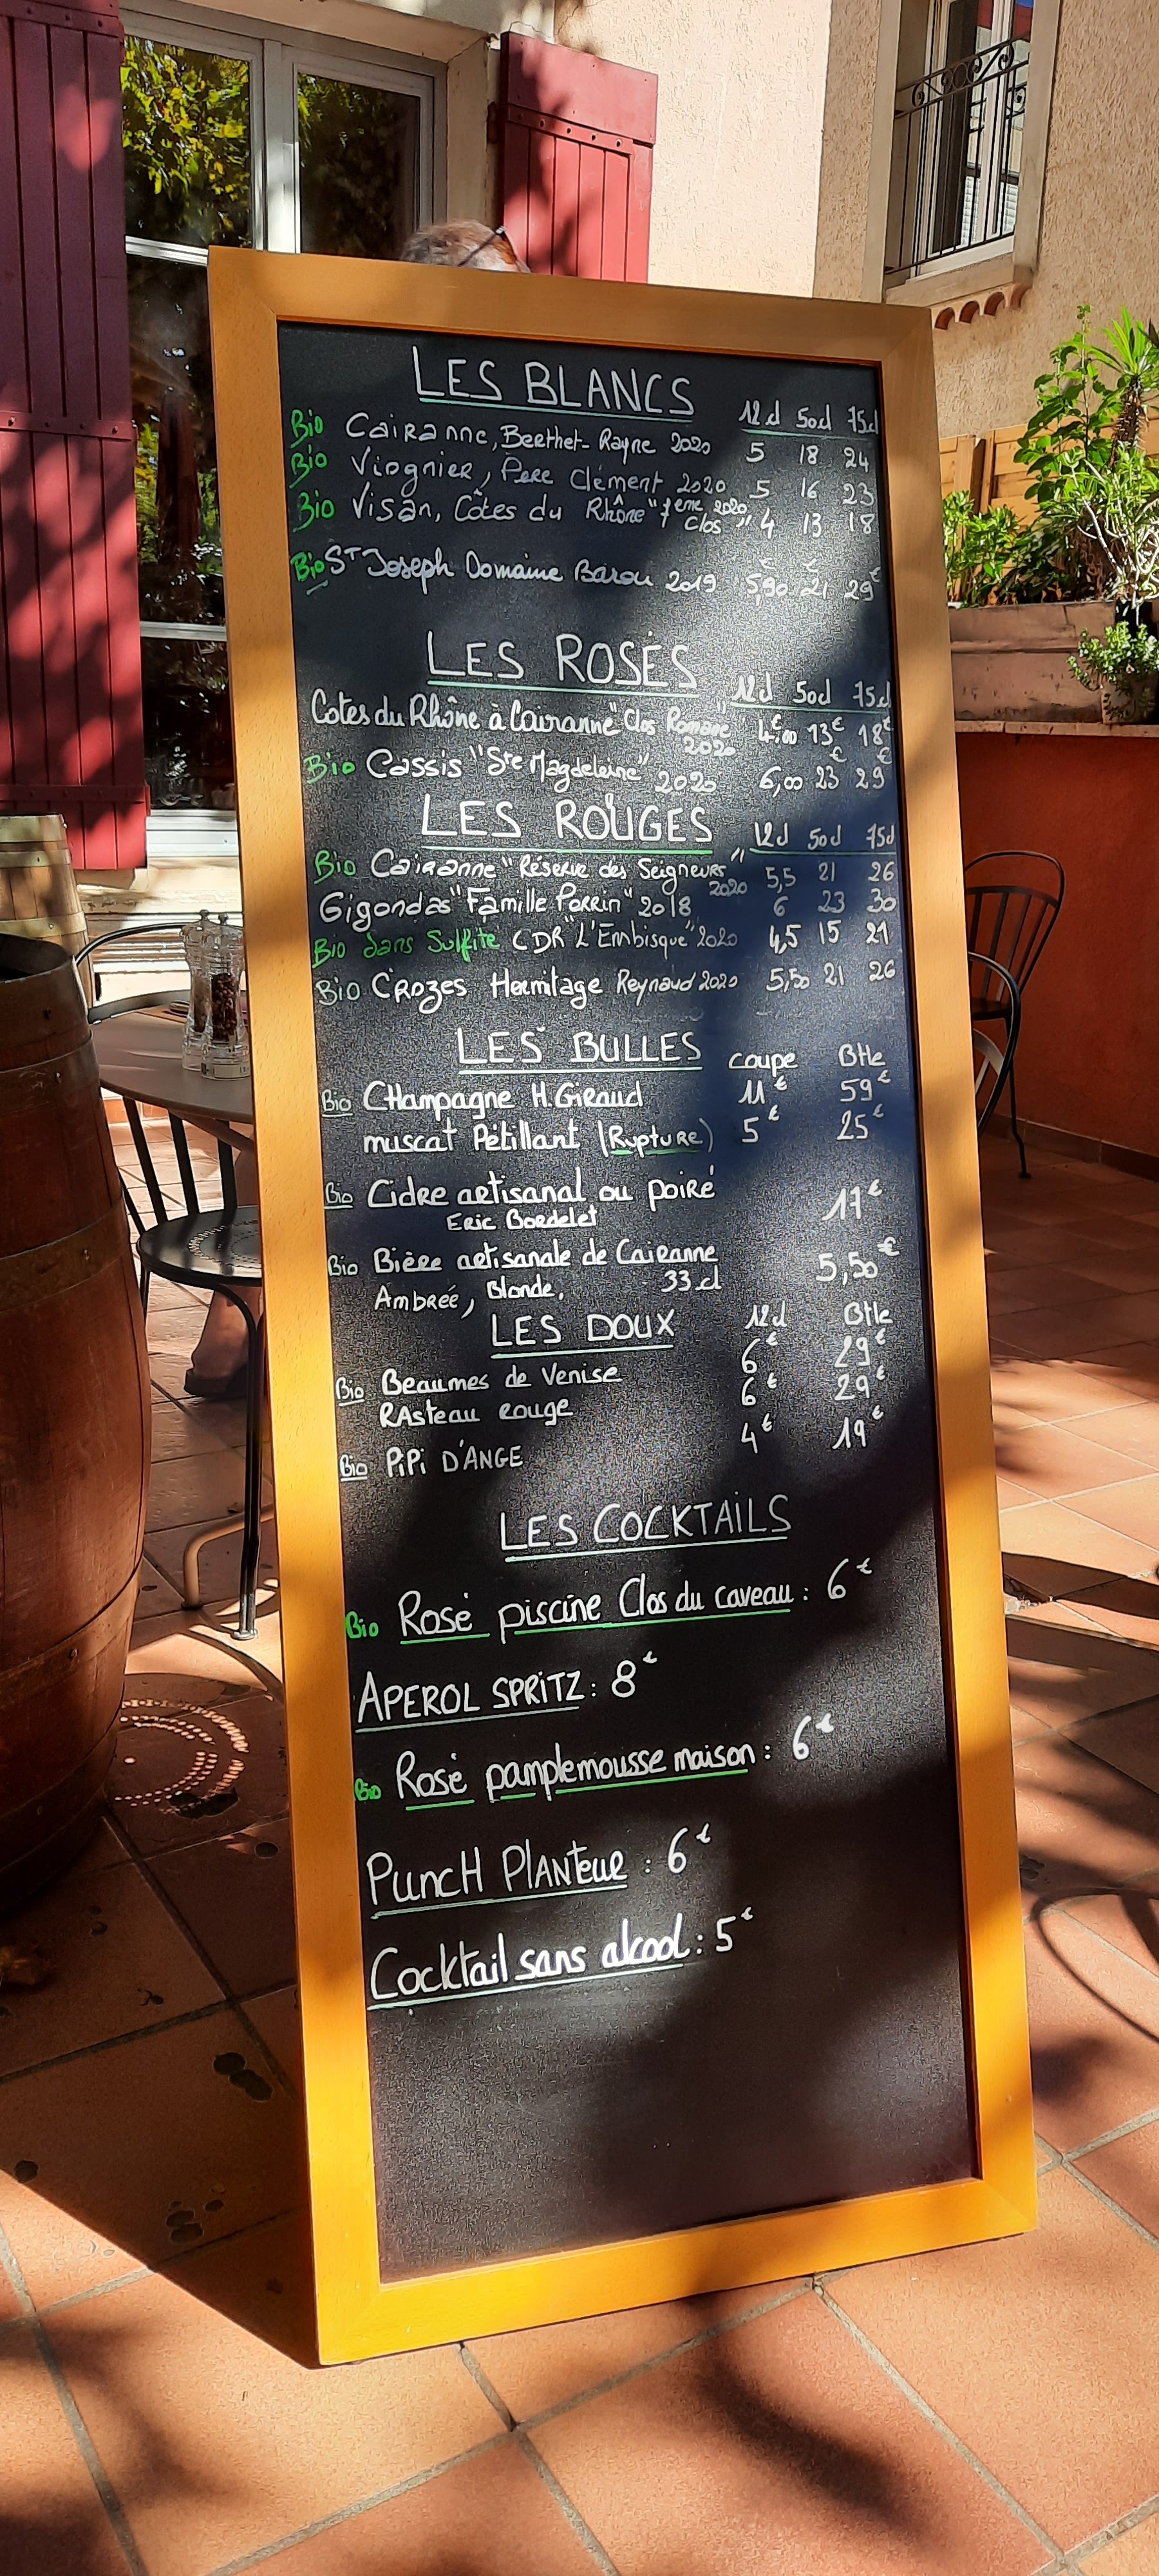 LES BLANCS 12cl 50cl 75cl
Bio Cairanne, Berthet-Rayne 2020 5 18 24
Bio Viognier, Pere Clément 2020 5 16 23
Bio Visan, Côtes du Rhône "1ere Clos" 2020 4 13 18
Bio ST Joseph Domaine Barou 2019 5,90€ 21€ 29€
LES ROSÉS 12cl 50cl 75cl
Cotes du Rhône à Cairanne "Clos Romane" 4€00 13€ 18€
2020
Bio Cassis "Ste Magdeleine" 2020 6,00 23€ 29€
LES ROUGES 12cl 50cl 75cl
Bio Cairanne "Réserve des Seigneurs" 2020 5,5 21 26
Gigondas "Famille Perrin" 2018 6 23 30
Bio Sans Sulfite CDR "L'Embisque" 2020 4,5 15 21
Bio Crozes Hermitage Reynaud 2020 5,50 21 26
LES BULLES coupe Btle
Bio CHampagne H.Giraud 11€ 59€
muscat Pétillant (Rupture) 5€ 25€
Bio Cidre artisanal ou poiré 17€
Eric Bordelet
Bio Bière artisanale de Cairanne 5,50€
Ambreé, Blonde. 33cl
LES DOUX 12cl Btle
Bio Beaumes de Venise 6€ 29€
RAsteau Rouge 6€ 29€
Bio PiPi D'ANGE 4€ 19€
LES COCKTAiLS
Bio Rosé piscine Clos du caveau : 6€
APEROL SPRiTZ : 8€
Bio Rosé pamplemousse maison : 6€
PuncH PlANteur : 6€
Cocktail sans alcool : 5€